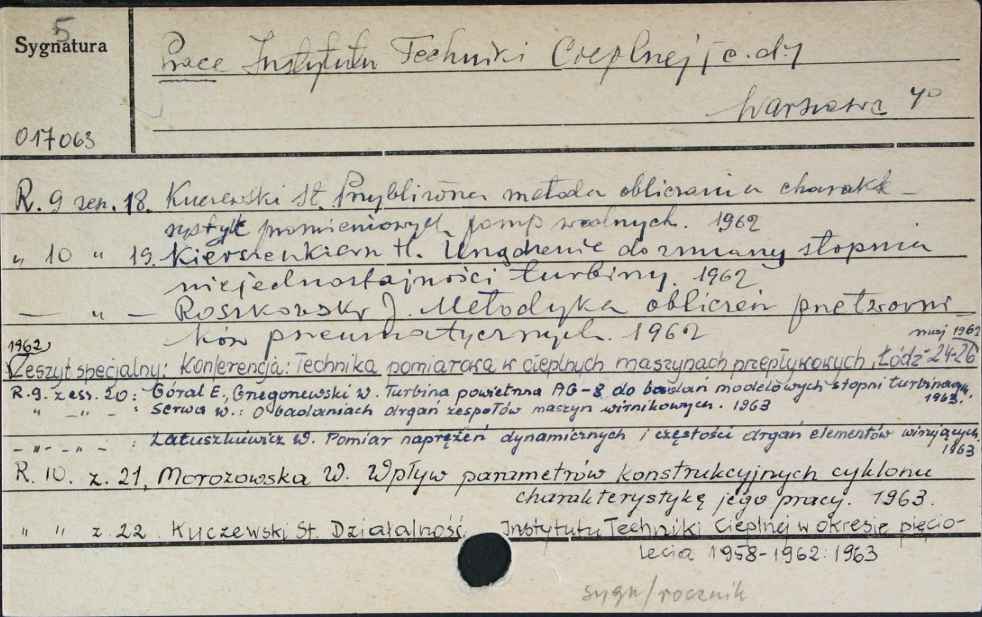 5
Sygnatura
Prace Instytutu Techniki Cieplnej [c.d.]
Warszawa 40
017063
R. 9 zesz. 18. Kuczewski St. Przybliżona metoda obliczania charakte-
rystyk promieniowych pomp wodnych. 1962
" 10 " 19. Kierszenkiern H. Urządzenie do zmiany stopnia
niejednostajności turbiny. 1962
— " — Roszkowski J. Metodyka obliczeń przetworni-
ków pneumatycznych. 1962
1962, maj 1962
Zeszyt specjalny: Konferencja: Technika pomiarowa w cieplnych maszynach przepływowych, Łódź 24-26
R. 9. zesz. 20: Góral E., Gregorewski W. Turbina powietrzna AG-8 do badań modelowych stopni turbinowych. 1963.
" — " — " : Serwa W.: O badaniach drgań zespołów maszyn wirnikowych. 1963
— " — " — " : Łatuszkiewicz W. Pomiar naprężeń dynamicznych i częstości drgań elementów wirujących. 1963
R. 10. z. 21, Morozowska W. Wpływ parametrów konstrukcyjnych cyklonu
charakterystykę jego pracy. 1963.
" " z. 22. Kuczewski St. Działalność Instytutu Techniki Cieplnej w okresie pięcio-
lecia 1958-1962. 1963
sygn/rocznik